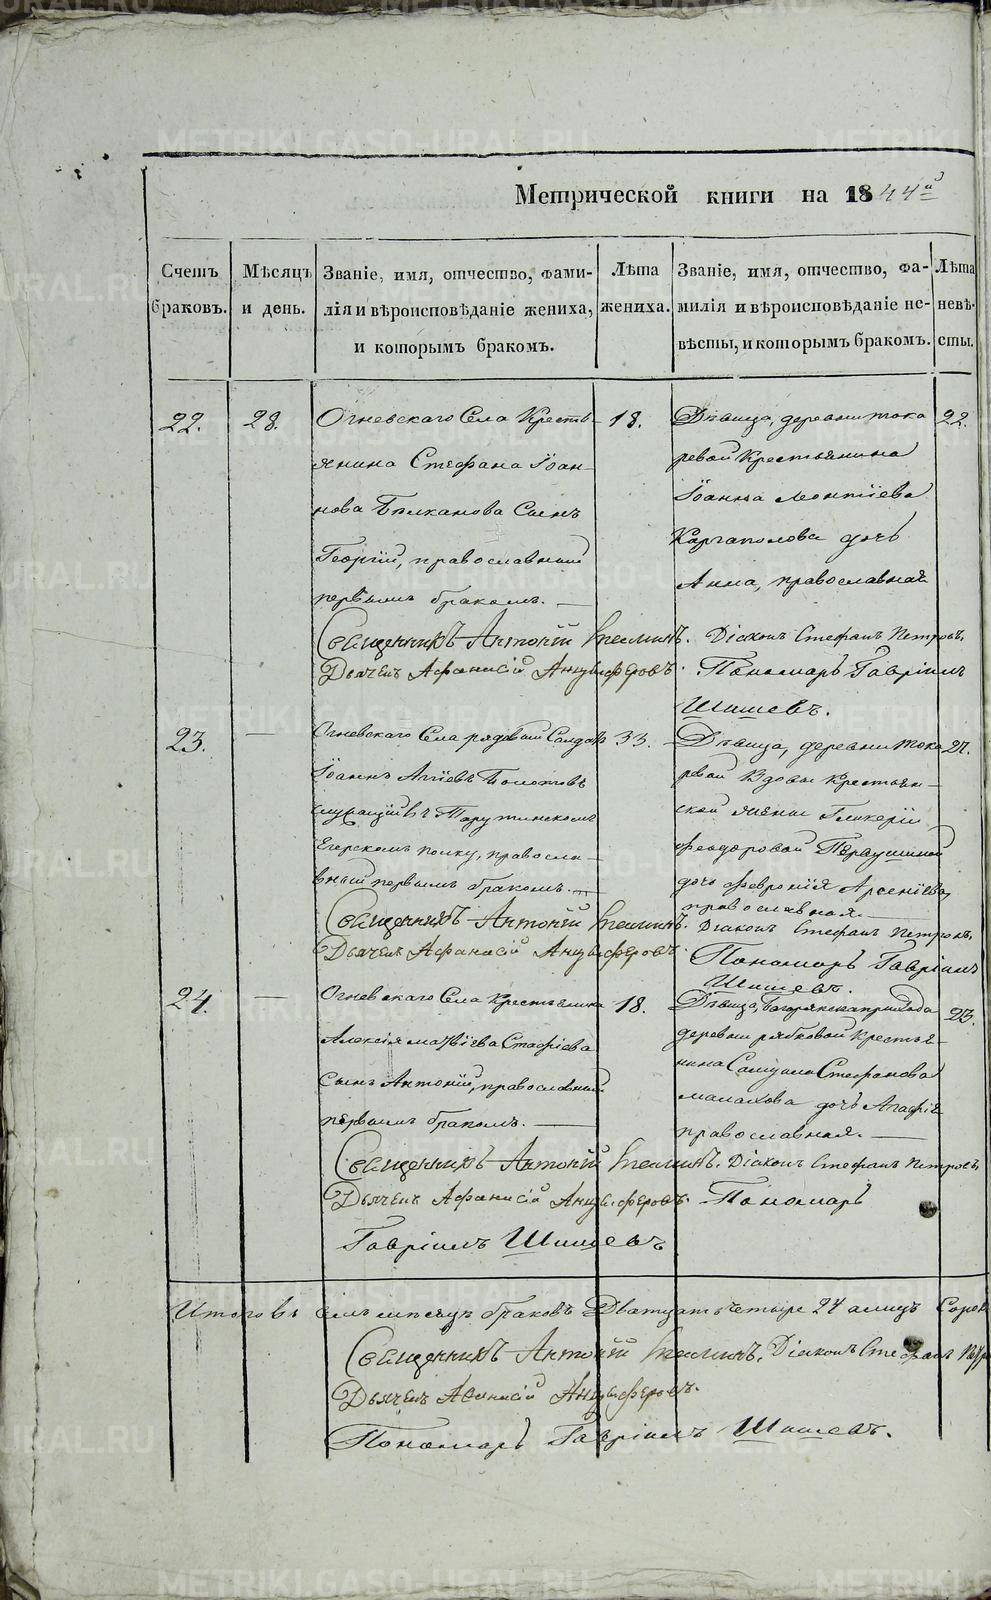 Метрической книги на 1844й
Счетъ браковъ.
Мѣсяцъ и день.
Званіе, имя, отчество, фами-
лія и вѣроисповѣданіе жениха,
и которымъ бракомъ.
Лѣта
жениха.
Званіе, имя, отчество, фа-
милія и вѣроисповѣданіе не-
вѣсты, и которымъ бракомъ.
Лѣта
невѣ-
сты.
22.
28.
Огневскаго Села Кресть-
янина Стефана Іоан-
нова Сынъ
Георгій, православный
первымъ бракомъ.
18.
Дѣвица, деревни Тока
ревой Крестьянина
Іоанна Монтіева
Каргаполова дочь
Анна, православная
22.
Священникъ Антоній
Діаконъ Стефанъ Петровъ.
Дьячекъ Афанасій Анцыферовъ.
Пономарь Гавріилъ
Шишевъ.
23.
Огневскаго Села рядовый Солдатъ
Іоаннъ
служащій въ Тарутинскомъ
Егерскомъ полку, правосла-
вный первымъ бракомъ.
33.
Дѣвица, деревни Тока
ревой Вдовы Крестьян-
ской жены Гликеріи
Феодоровой
дочь Февронія Арсеніева,
православная.
27.
Священникъ Антоній
Діаконъ Стефанъ Петровъ,
Дьячекъ Афанасій Анцыферовъ.
Пономарь Гавріилъ
Шишевъ.
24.
Огневскаго Села Крестьянина
Алексія Матвіева
Сынъ Антоній, православный
первымъ бракомъ.
18.
Дѣвица, прихода
деревни рябковой Крестья-
нина Самуила Стефанова
малахова дочь Агафія
православная.
23.
Священникъ Антоній
Діаконъ Стефанъ Петровъ,
Дьячекъ Афанасій Анцыферовъ.
Пономарь
Гавріилъ Шишевъ
Итого въ семъ мѣсяцѣ браковъ Дватцать четыре 24 а лицъ
Священникъ Антоній
Діаконъ Стефанъ
Дьячекъ Афанасій Анцыферовъ.
Пономарь Гавріилъ Шишевъ.
METRIKI.GASO-URAL.RU